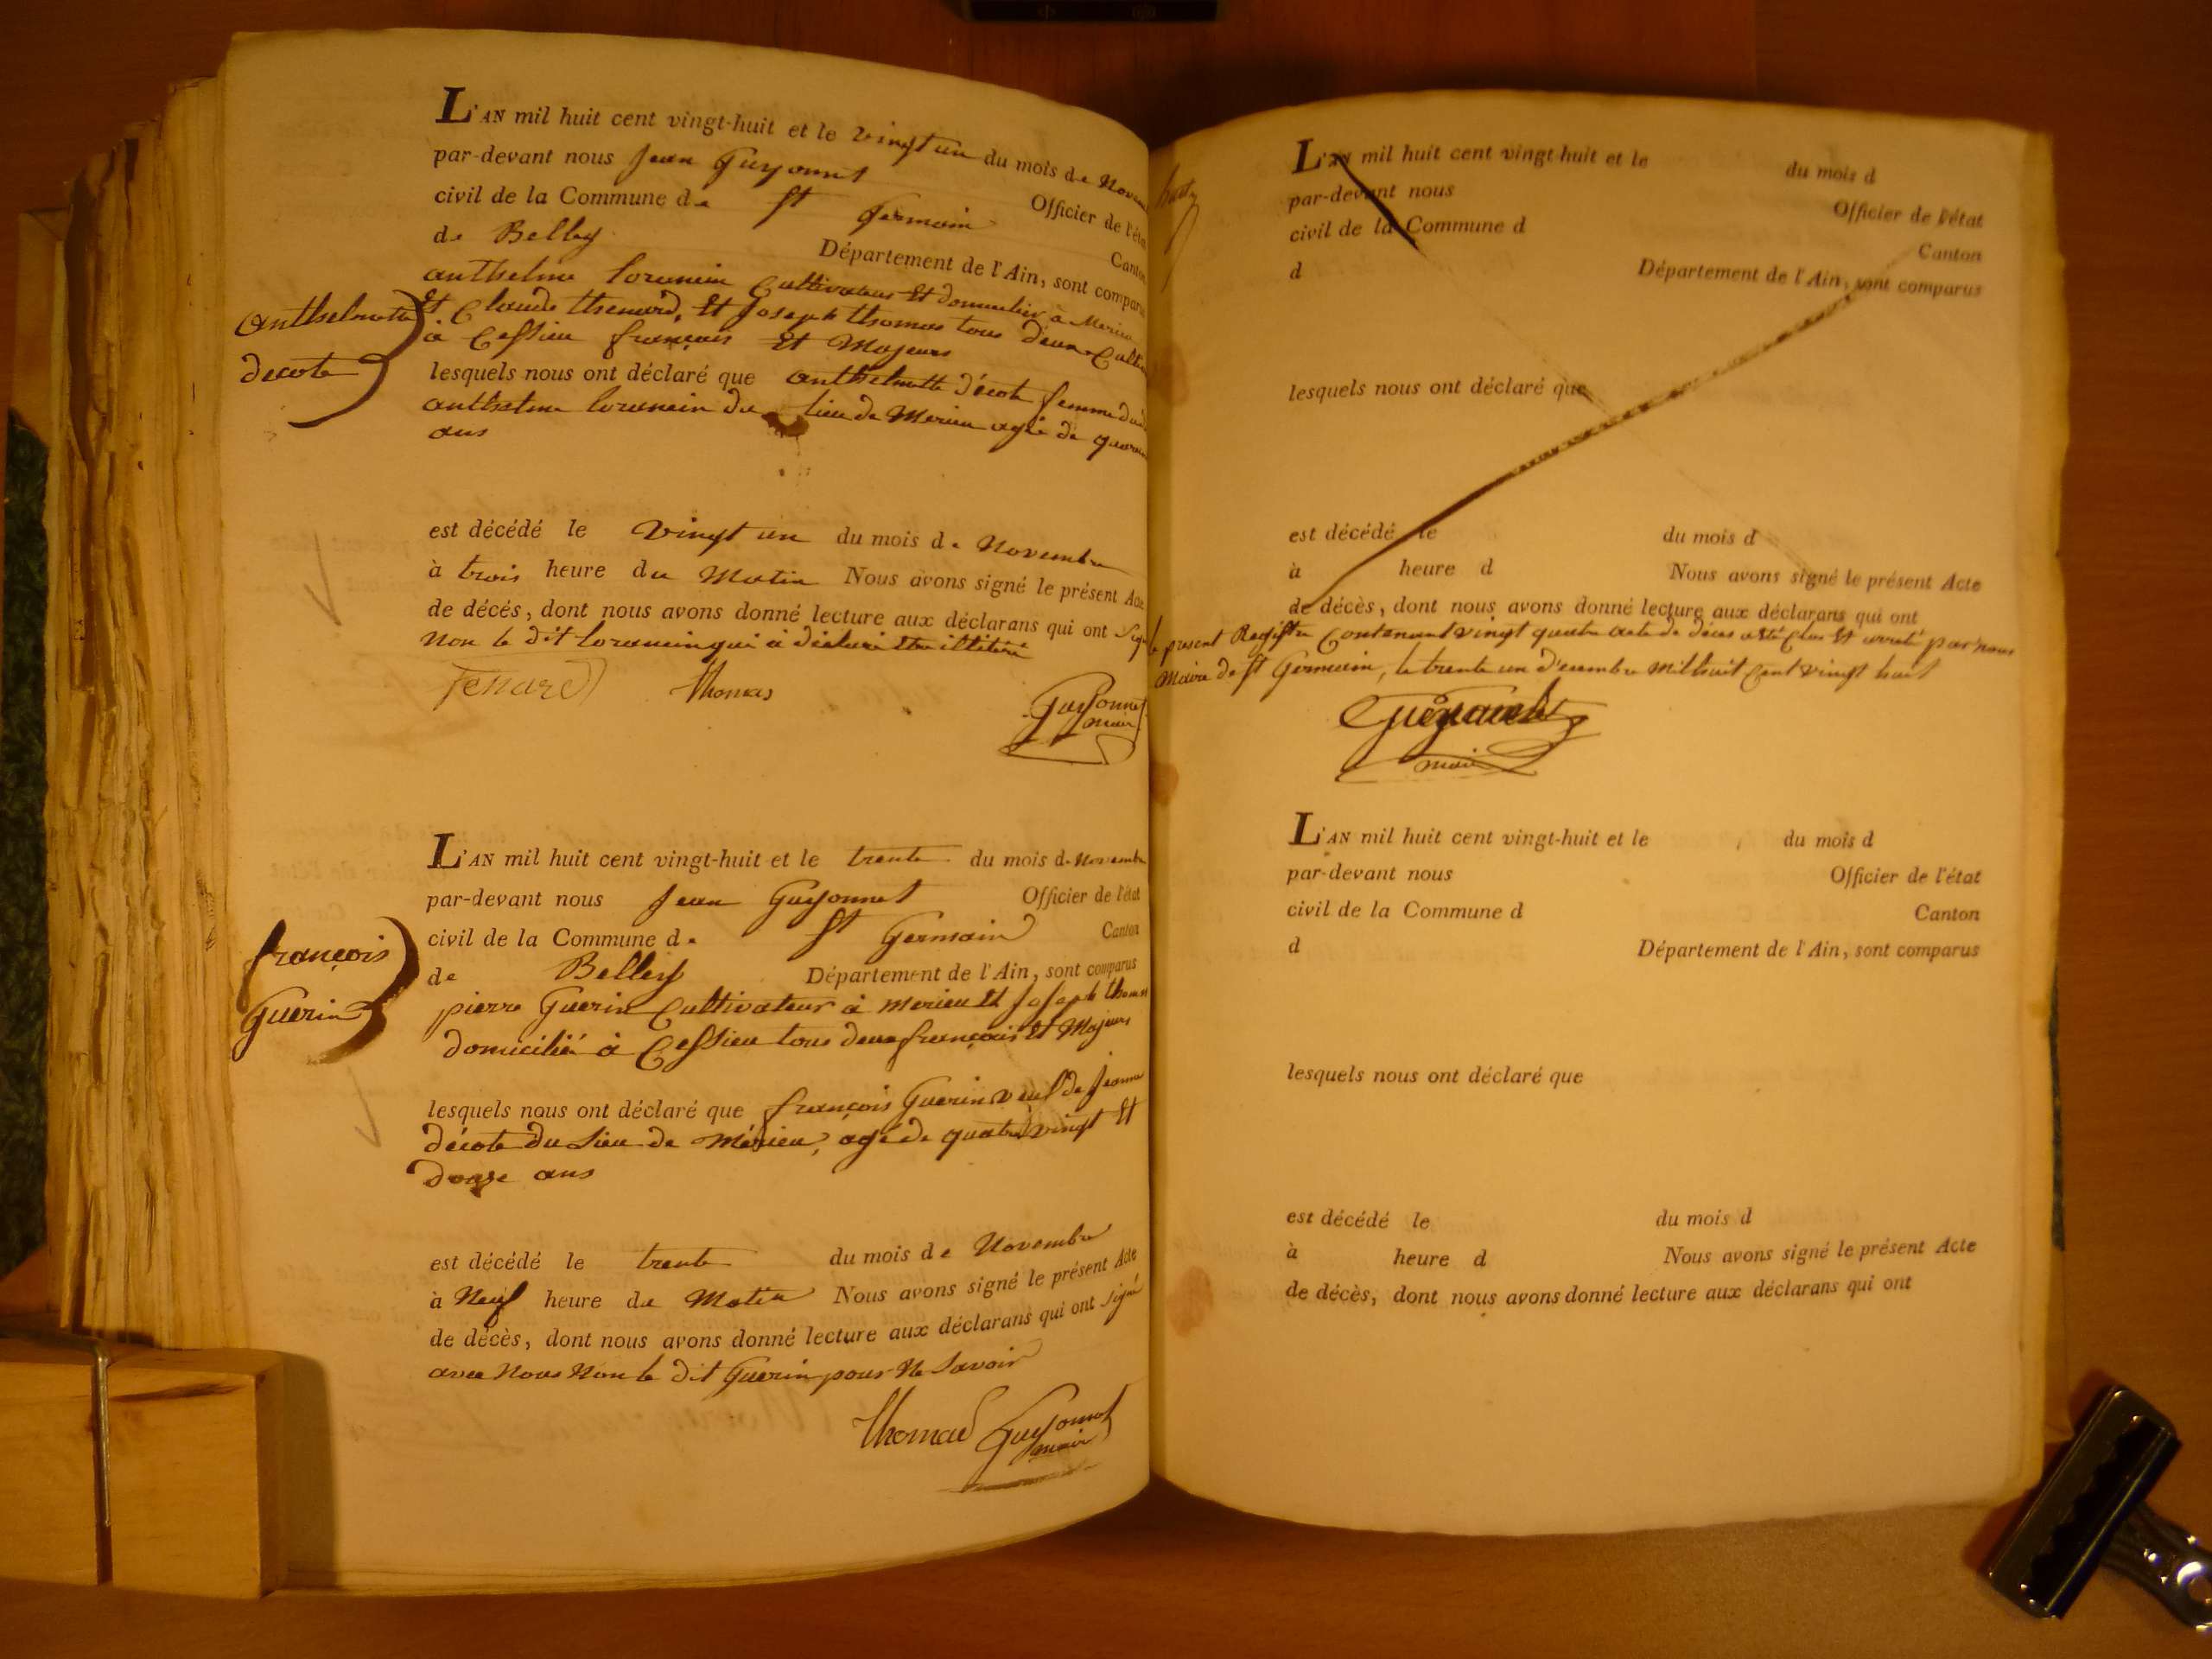 L'AN mil huit cent vingt-huit et le vingt un du mois de Novem
par-devant nous Jean Guyonnet Officier de l'éta
civil de la Commune de St Germain Canton
de Belley Département de l'Ain, sont comparu
anthelme Cultivateur Et domicilié à Merieu
Et Claude thenard, Et Joseph thomas tous deux Culti
à Cessieu français Et Majeurs
Anthelmette
decote
lesquels nous ont déclaré que anthelmette décote femme du
anthelme du lieu de Merieu agée de quaran
ans
est décédé le vingt un du mois de Novembre
à trois heure du Matin Nous avons signé le présent Acte
de décés, dont nous avons donné lecture aux déclarans qui ont Signé
non le dit qui à déclaré Etre illitéré
Tenard Thomas Guyonnet
maire
L'AN mil huit cent vingt-huit et le trente du mois de Novembre
par-devant nous Jean Guyonnet Officier de l'état
civil de la Commune de St Germain Canton
de Belley Département de l'Ain, sont comparus
françois
Guerin
pierre Guerin Cultivateur à merieu Et Joseph thomas
domicilié à Cessieu tous deux français Et Majeurs
lesquels nous ont déclaré que françois Guerin veuf de Jeanne
décote du Lieu de Mérieu, agé de quatre vingt Et
douze ans
est décédé le trente du mois de Novembre
à Neuf heure du Matin Nous avons signé le présent Acte
de décès, dont nous avons donné lecture aux déclarans qui ont signé
avec Nous Non le dit Guerin pour Ne Savoir
Thomas Guyonnet
maire
L'AN mil huit cent vingt-huit et le du mois d
par-devant nous Officier de l'état
civil de la Commune d Canton
d Département de l'Ain, sont comparus
lesquels nous ont déclaré que
est décédé le du mois d
à heure d Nous avons signé le présent Acte
de décès, dont nous avons donné lecture aux déclarans qui ont
le present Registre Contenant vingt quatre acte de déces a été Clos Et arreté par nous
Maire de St Germain, le trente un décembre mil huit Cent vingt huit
maire
L'AN mil huit cent vingt-huit et le du mois d
par-devant nous Officier de l'état
civil de la Commune d Canton
d Département de l'Ain, sont comparus
lesquels nous ont déclaré que
est décédé le du mois d
à heure d Nous avons signé le présent Acte
de décès, dont nous avons donné lecture aux déclarans qui ont